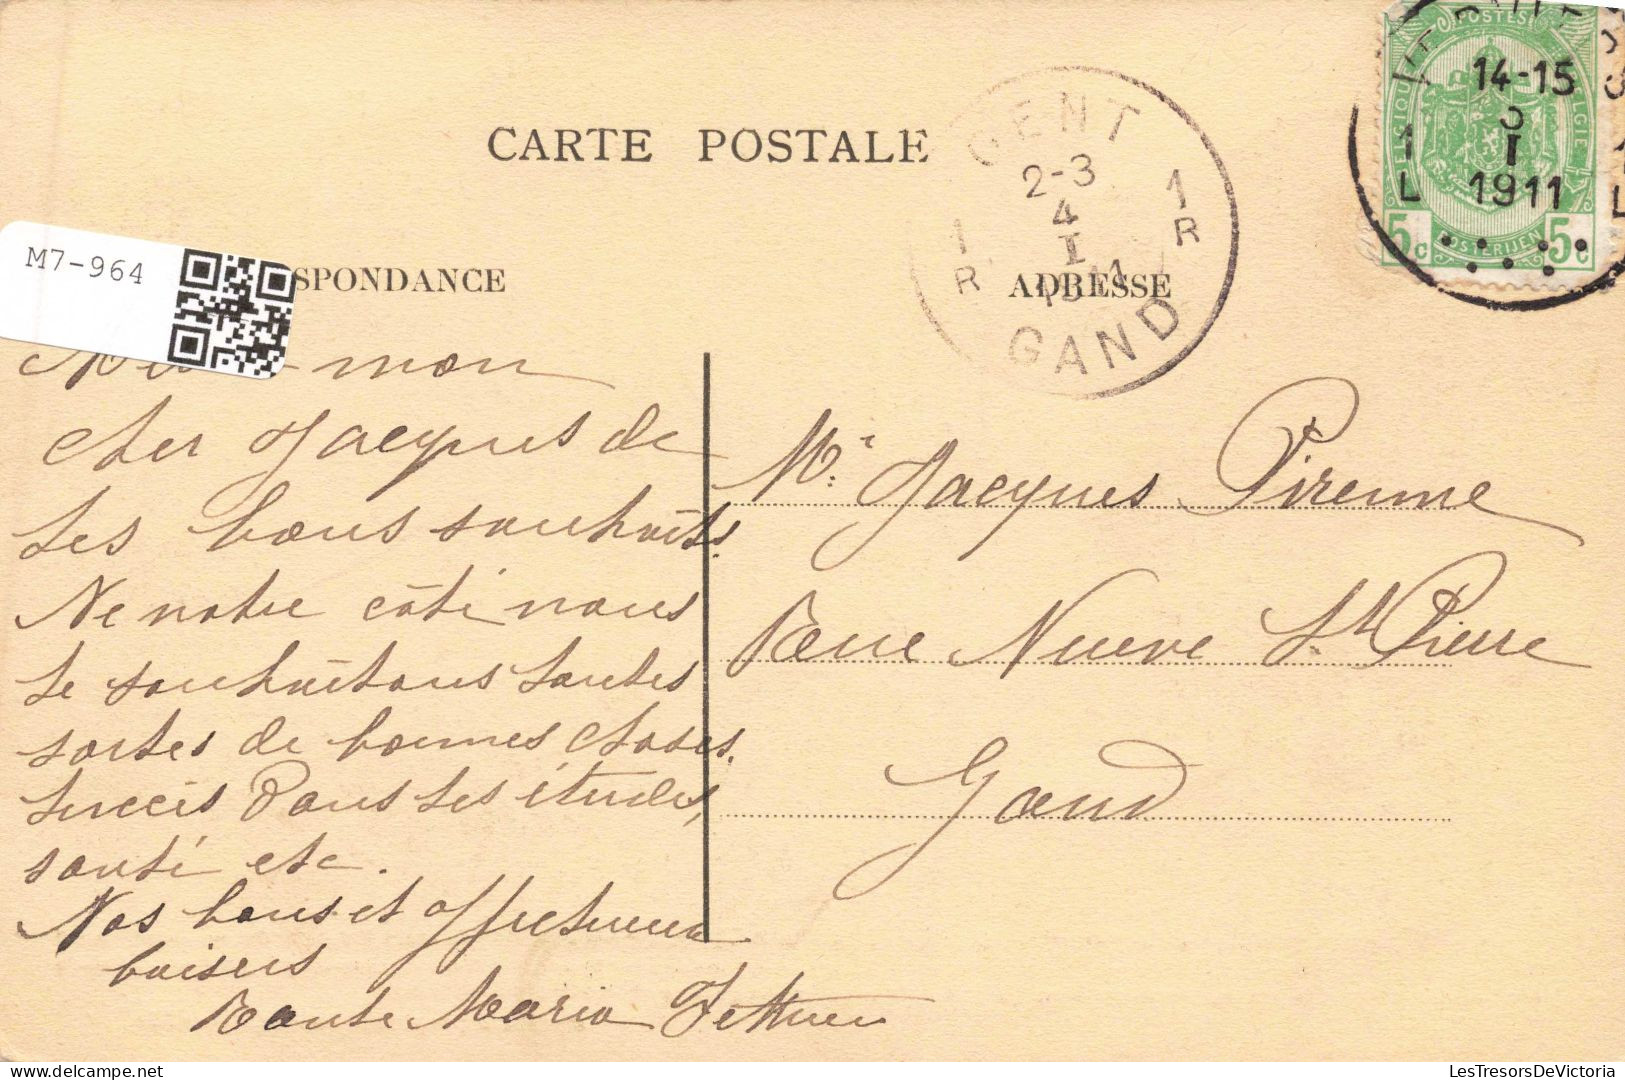 CARTE POSTALE
GENT
2-3
4
I
1911
1
R
1
R
GAND
POSTES
14-15
3
I
1911
1
L
L
5c
POSTERIJEN
5c
M7-964
SPONDANCE
ADRESSE
mon
cher Jacques de
tes bons souhaits.
De notre côté nous
te souhaitons toutes
sortes de bonnes choses.
succès dans tes études,
santé etc.
Nos bons et affectueux
baisers
Tante Maria
Mr. Jacques Pirenne
Rue Nueve St. Pierre
Gand
LesTresorsDeVictoria